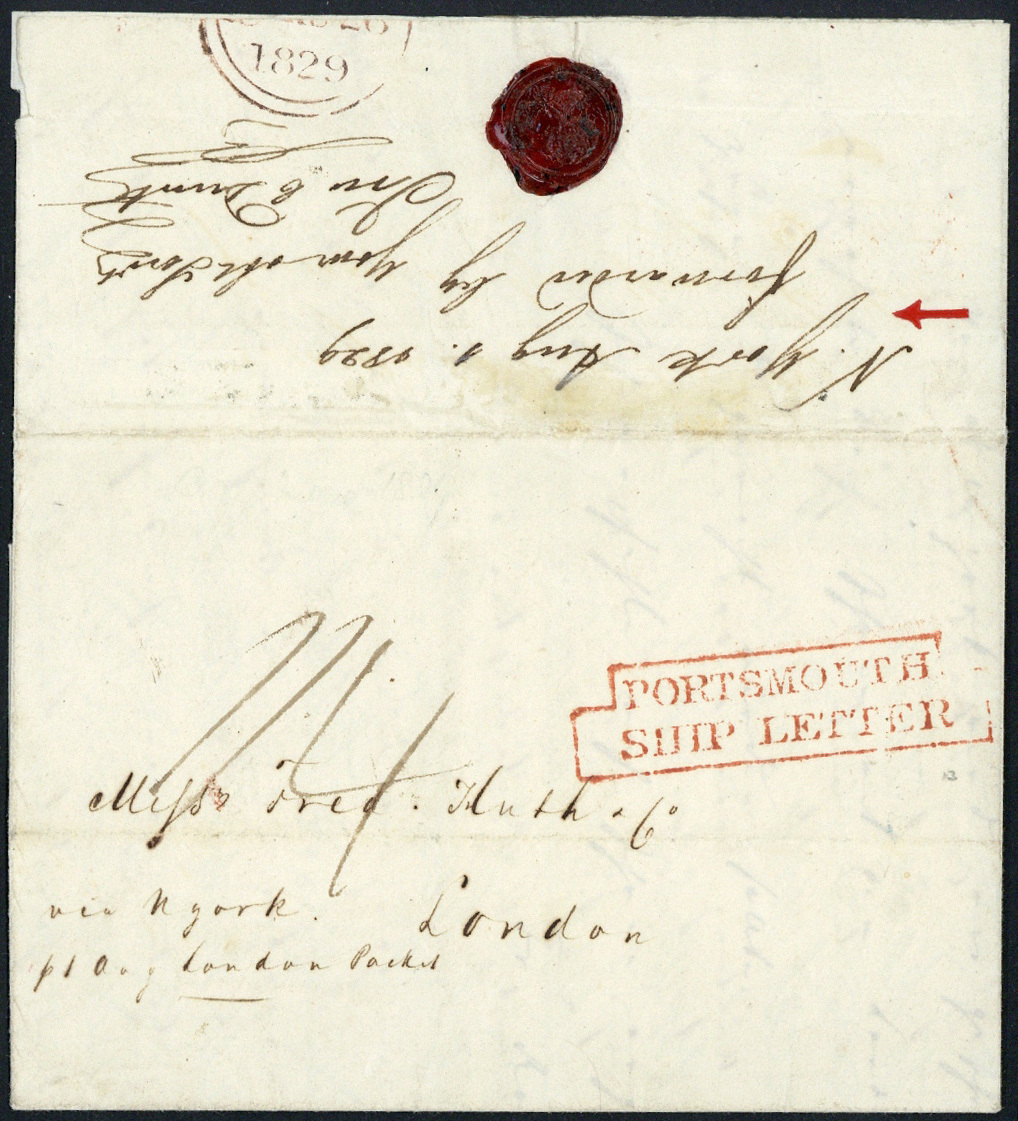 1829
N. York Aug 1. 1829
forwarded by Your obt Servt
PORTSMOUTH
SHIP LETTER
Messrs Fred. Huth & Co
London
via N york.
London Packet